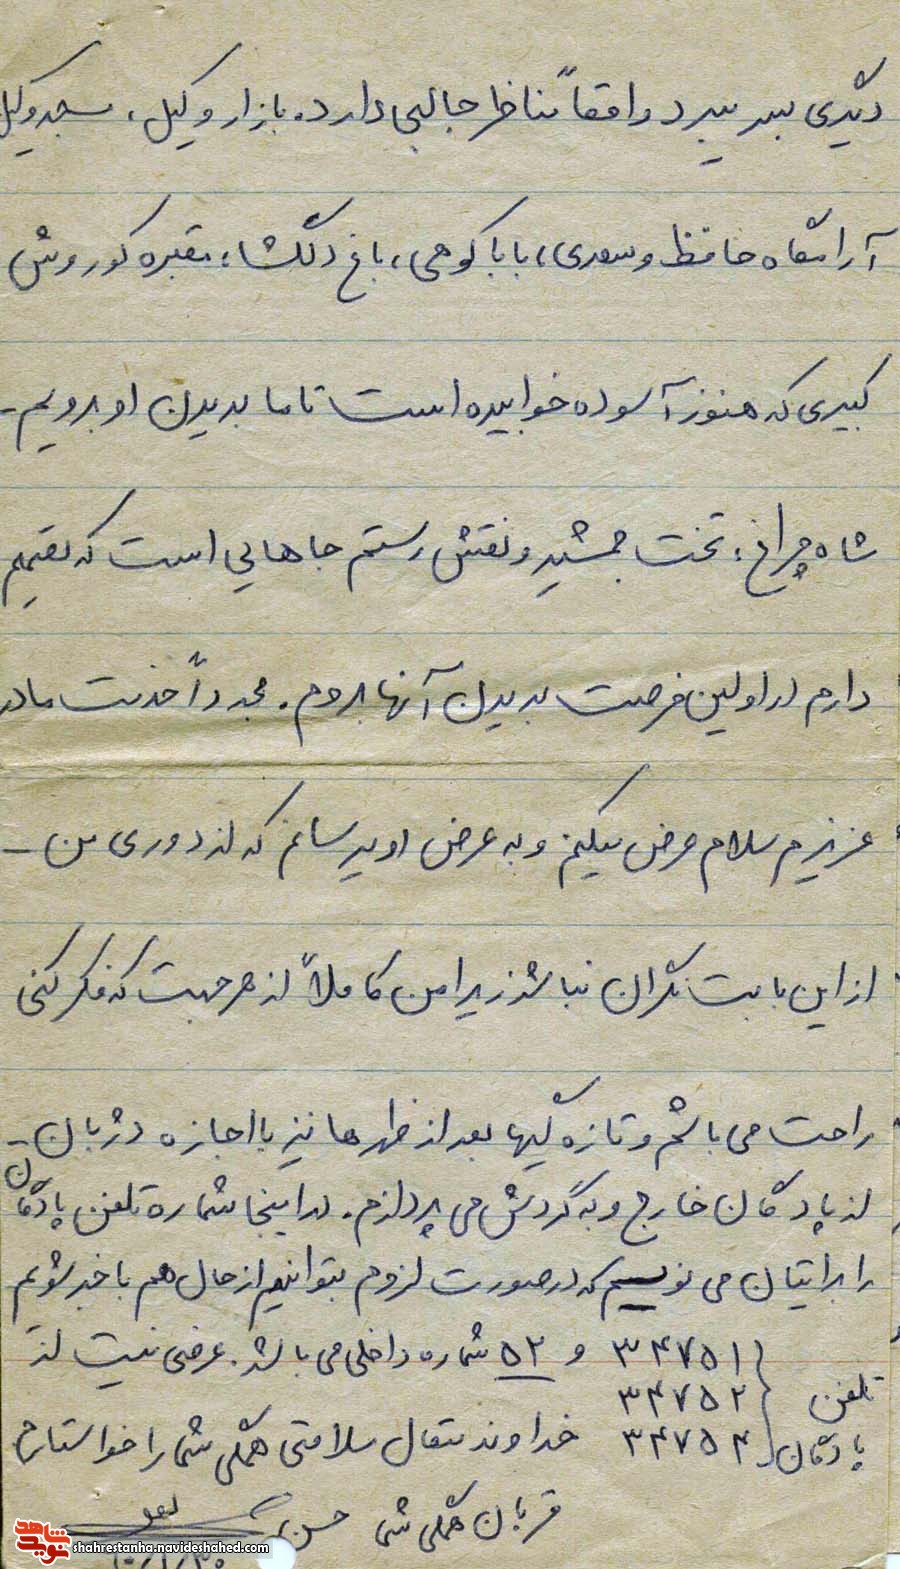 دیگری بسر میبرد واقعاً مناظر جالبی دارد. بازار وکیل، مسجد وکیل
آرامگاه حافظ و سعدی، باباکوهی، باغ دلگشا، مقبره کوروش
کبیری که هنوز آسوده خوابیده است تا ما بدیدن او برویم-
شاه چراغ، تخت جمشید و نقش رستم جاهایی است که تصمیم
دارم در اولین فرصت بدیدن آنها بروم. مجدداً خدمت مادر
عزیزم سلام عرض میکنم و به عرض او میرسانم که از دوری من -
از این بابت نگران نباشد زیرا من کاملاً از هر جهت که فکر کنی
راحت می باشم و تازه گیها بعد از ظهرها نیز با اجازه دژبان-
از پادگان خارج و به گردش می پردازم. در اینجا شماره تلفن پادگان
را برایتان می نویسم که در صورت لزوم بتوانیم از حال هم با خبر شویم
تلفن پادگان
۳۴۷۵۱ و ۵۲ شماره داخلی می باشد. عرضی نیست از
۳۴۷۵۲
۳۴۷۵۴ خداوند متعال سلامتی همگی شما را خواستارم
قربان همگی شما حسن
۳۰/۱/
شاهد
نوید
shahrestanha.navideshahed.com